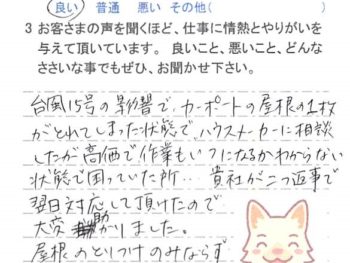 良い 普通 悪い その他(
3 お客さまの声を聞くほど、仕事に情熱とやりがいを
与えて頂いています。 良いこと、悪いこと、どんな
ささいな事でもぜひ、お聞かせ下さい。
台風15号の影響で、カーポートの屋根の1枚
がとれてしまった状態で、ハウスメーカーに相談
したが高価で作業もいつになるかわからない
状態で困っていた所… 貴社が二つ返事で
翌日対応して頂けたので
大変助かりました。
屋根のとりつけのみならず